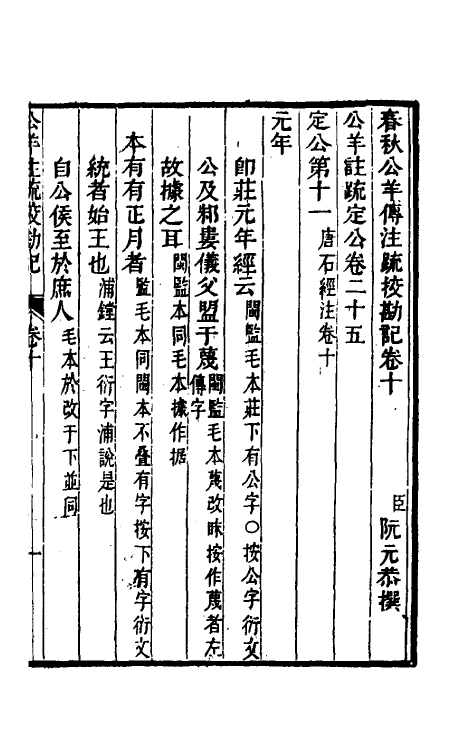 春秋公羊傳注疏挍勘記卷十　臣阮元恭撰
公羊註疏定公卷二十五
定公第十一　唐石經注卷十
元年
卽莊元年經云　閩監毛本莊下有公字○按公字衍文
公及邾婁儀父盟于蔑　閩監毛本蔑改眛按作蔑者左傳字
故據之耳　閩監本同毛本據作据
本有有正月者　監毛本同閩本不叠有字按下有字衍文
統者始王也　浦鏜云王衍字浦說是也
自公侯至於庶人　毛本於改于下並同
公羊注疏挍勘記　卷十　一